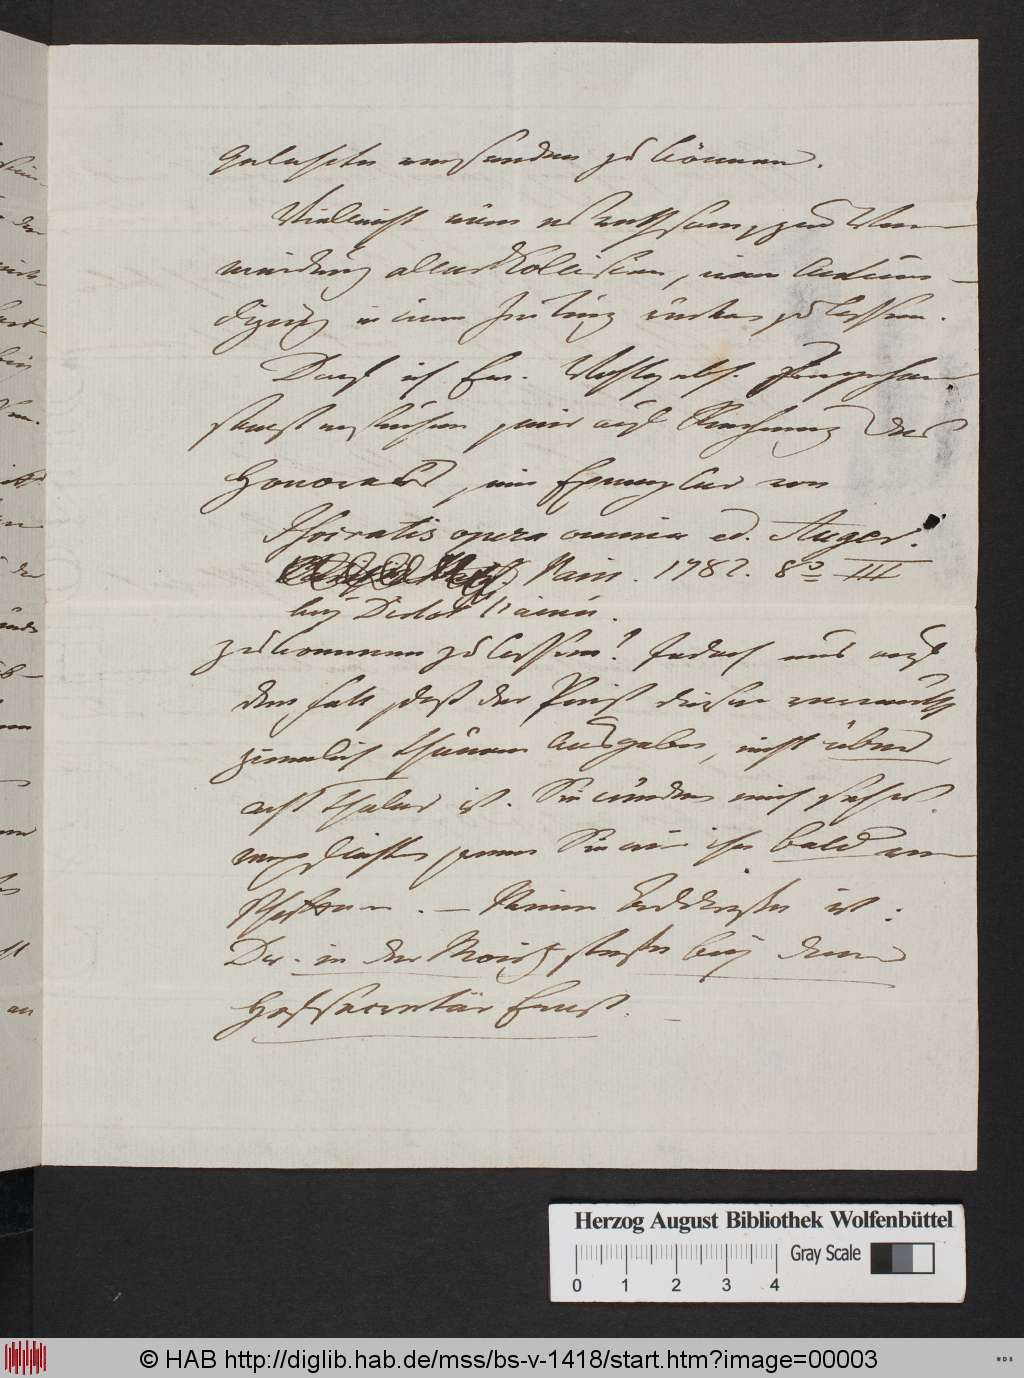 versenden zu können.
Vielleicht wäre es rathsam, zur Ver-
meidung aller Collision, eine Ankün-
digung in einer Zeitung rücken zu lassen.
Darf ich Ew. Wohlgeb.
ersuchen, mir auf Rechnung des
Honorars, ein Exemplar von
Isocratis opera omnia ed. Auger.
Paris. 1782. 8º III
bey Didot
zukommen zu lassen? Jedoch nur auf
den Fall, daß der Preis dieser
ziemlich theuren Ausgabe, nicht über
acht Thaler ist. Sie würden mich sehr
wenn Sie mir sie bald ver-
schafften. — Meine Addresse ist:
Dr. in der Moritzstraße bey dem
Hofsecretär Ernst.
Herzog August Bibliothek Wolfenbüttel
Gray Scale
0 1 2 3 4
© HAB http://diglib.hab.de/mss/bs-v-1418/start.htm?image=00003